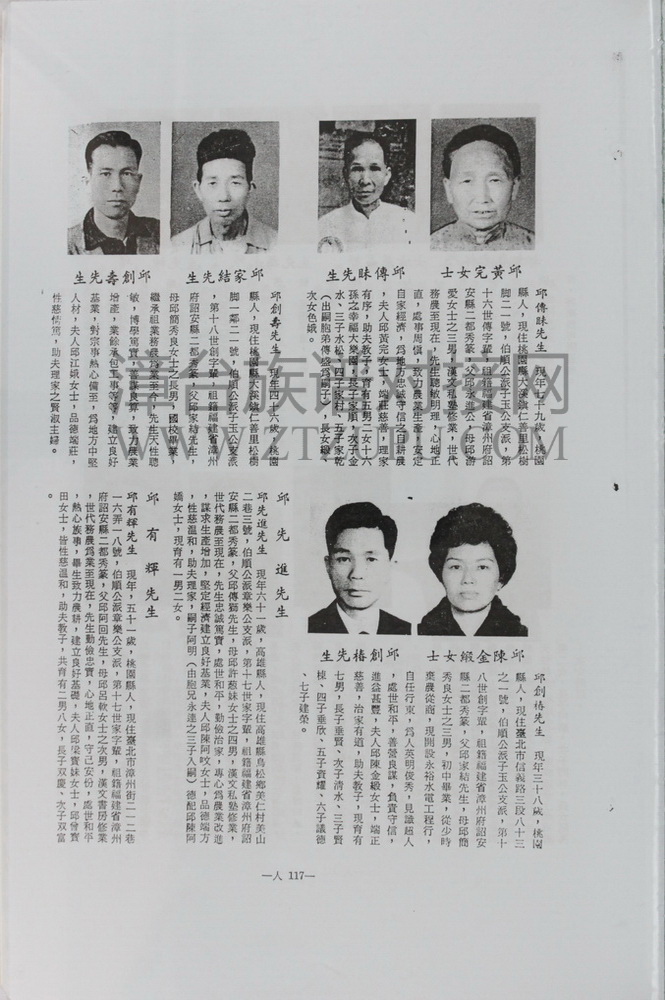 邱黃完女士
邱傳昧先生
邱傳昧先生　現年七十九歲，桃園
縣人，現住桃園縣大溪鎮仁善里松樹
脚二一號，伯順公派子玉公支派，第
十六世傳字輩，祖籍福建省漳州府詔
安縣二都秀篆，父邱永進公，母邱游
愛女士之三男，漢文私塾修業，世代
務農至現在，先生聰敏明理，心地正
直，處事周愼，致力農業生產，安定
自家經濟，爲地方忠誠守信之自耕農
，夫人邱黃完女士，端莊慈善，理家
有序，助夫教子，育有五男二女十六
孫之幸福大樂園，長子家順、次子金
水、三子水松、四子家村、五子家乾
（出嗣胞弟傳盛爲嗣子），長女緞、
次女色娥。
邱家結先生
邱創壽先生
邱創壽先生　現年四十六歲，桃園
縣人，現住桃園縣大溪鎮仁善里松樹
脚一鄰二一號，伯順公派子玉公支派
，第十八世創字輩，祖籍福建省漳州
府詔安縣二都秀篆，父邱家結先生，
母邱簡秀良女士之長男，國校畢業，
繼承祖業務農爲業至今，先生天性聰
敏，博學篤實，善謀良算，致力農業
增產，業餘承包工事等等，建立良好
基業，對宗事熱心備至，爲地方中堅
人材，夫人邱江娥女士，品德端莊，
性慈情篤，助夫理家之賢淑主婦。
邱陳金緞女士
邱創椿先生
邱創椿先生　現年三十八歲，桃園
縣人，現住臺北市信義路三段八十三
之一號，伯順公派子玉公支派，第十
八世創字輩，祖籍福建省漳州府詔安
縣二都秀篆，父邱家結先生，母邱簡
秀良女士之三男，初中畢業，從少時
棄農從商，現開設永裕水電工程行，
自任行東，爲人英明俊秀，見識超人
，處世和平，善營良謀，負責守信，
進益甚豐，夫人邱陳金緞女士，端正
慈善，治家有道，助夫教子，現育有
七男，長子垂賢、次子清水、三子賢
棟、四子垂欣、五子資燿、六子議德
、七子建榮。
邱先進先生
邱先進先生　現年六十一歲，高雄縣人，現住高雄縣鳥松鄉美仁村美山
二巷三號，伯順公派章樂公支派，第十七世家字輩，祖籍福建省漳州府詔
安縣二都秀篆，父邱傳獅先生，母邱許葱妹女士之四男，漢文私塾修業，
世代務農至現在，先生忠誠篤實，處世和平，勤儉治家，專心爲農業改進
，謀求生產增加，堅定經濟建立良好基業，夫人邱陳阿呅女士，品德端方
，性慈溫和，助夫理家，嗣子阿明（由胞兄永連之三子入嗣）德配邱陳阿
嬌女士，現育有一男二女。
邱有輝先生
邱有輝先生　現年，五十一歲，桃園縣人，現住臺北市漳州街二一二巷
一六弄一八號，伯順公派章樂公支派，第十七世家字輩，祖籍福建省漳州
府詔安縣二都秀篆，父邱阿回先生，母邱呂軟女士之次男，漢文書房修業
，世代務農爲業至現在，先生勤儉忠實，心地正直，守己安份，處世和平
，熱心族事，畢生致力農耕，建立良好基礎，夫人邱梁寶妹女士，邱曾寶
田女士，皆性慈溫和，助夫教子，共育有二男八女，長子双慶、次子双富
。
—人 117—